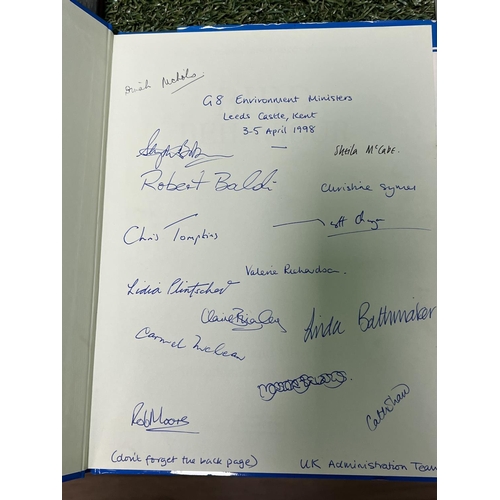 Nichols.
G8 Environment Ministers
Leeds Castle, Kent
3-5 April 1998
Sheila McCabe.
Robert Baldi
Christine Symes
Chris Tompkins
Valerie Richardson.
Lidia Plintschev
Claire Brigley
Linda Bathmaker
Carmel McLean
Cath Shaw
Rob Moores
(don't forget the back page)
UK Administration Team